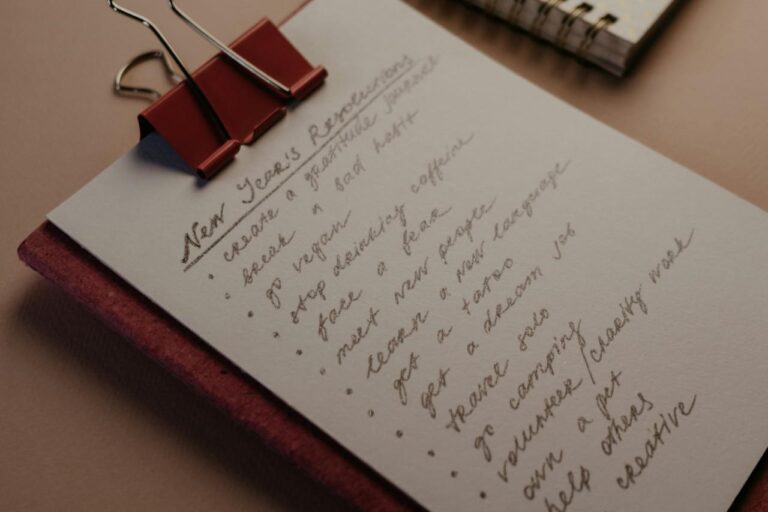 New Year's Resolutions
• create a gratitude journal
• break a bad habit
• go vegan
• stop drinking caffeine
• face a fear
• meet new people
• learn a new language
• get a tatoo
• get a dream job
• travel solo
• go camping
• volunteer / charity work
own a pet
help others
creative